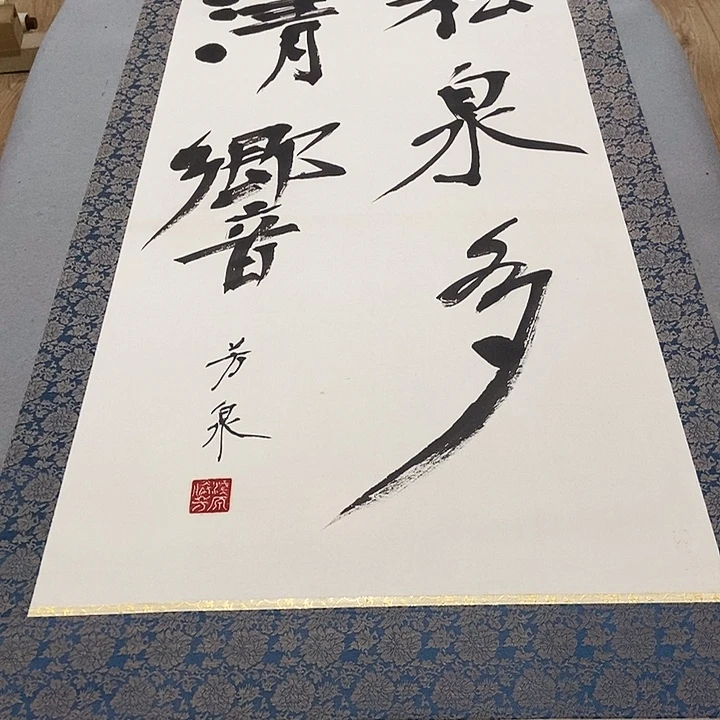 松泉多
清響
芳泉